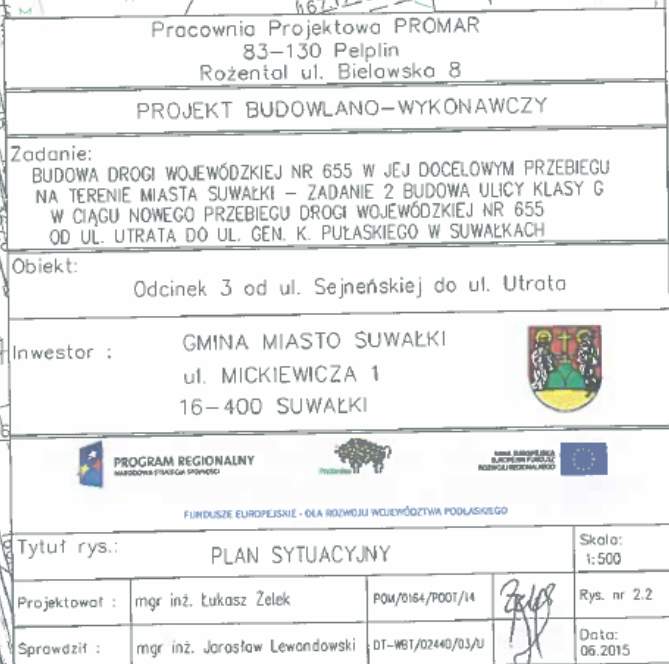 667.1
M
Pracownia Projektowa PROMAR
83-130 Pelplin
Rożental ul. Bielawska 8
PROJEKT BUDOWLANO-WYKONAWCZY
Zadanie:
BUDOWA DROGI WOJEWÓDZKIEJ NR 655 W JEJ DOCELOWYM PRZEBIEGU
NA TERENIE MIASTA SUWAŁKI – ZADANIE 2 BUDOWA ULICY KLASY G
W CIĄGU NOWEGO PRZEBIEGU DROGI WOJEWÓDZKIEJ NR 655
OD UL. UTRATA DO UL. GEN. K. PUŁASKIEGO W SUWAŁKACH
Obiekt:
Odcinek 3 od ul. Sejneńskiej do ul. Utrata
Inwestor :
GMINA MIASTO SUWAŁKI
ul. MICKIEWICZA 1
16-400 SUWAŁKI
PROGRAM REGIONALNY
NARODOWA STRATEGIA SPÓJNOŚCI
UNIA EUROPEJSKA
EUROPEJSKI FUNDUSZ
ROZWOJU REGIONALNEGO
FUNDUSZE EUROPEJSKIE - DLA ROZWOJU WOJEWÓDZTWA PODLASKIEGO
Tytuł rys.:
PLAN SYTUACYJNY
Skala:
1:500
Projektował :
mgr inż. Łukasz Żelek
POM/0164/POOT/14
Rys. nr 2.2
Sprawdził :
mgr inż. Jarosław Lewandowski
DT-WBT/02440/03/U
Data:
06.2015